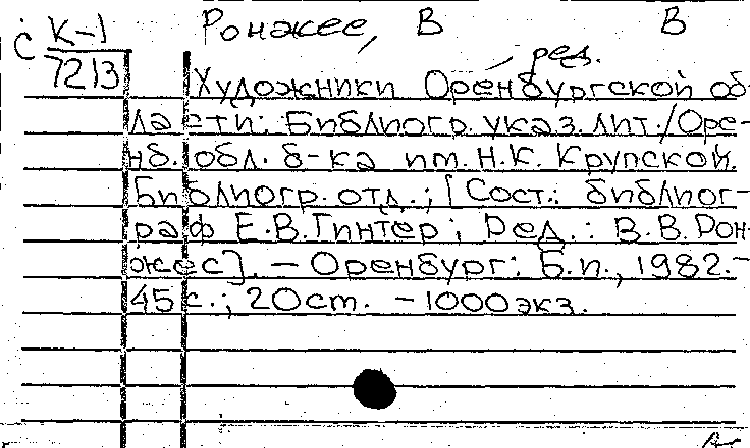 Ронжее, В В
с К-1
7213
ред.
Художники Оренбургской об-
ласти: Библиогр. указ. лит./Оре-
нб. обл. б-ка им. Н.К. Крупской.
Библиогр. отд.; [Сост.: библиог-
раф Е.В. Гинтер; Ред.: В.В. Рон-
жес]. – Оренбург: Б.п., 1982.-
45 с.; 20 ст. – 1000 экз.